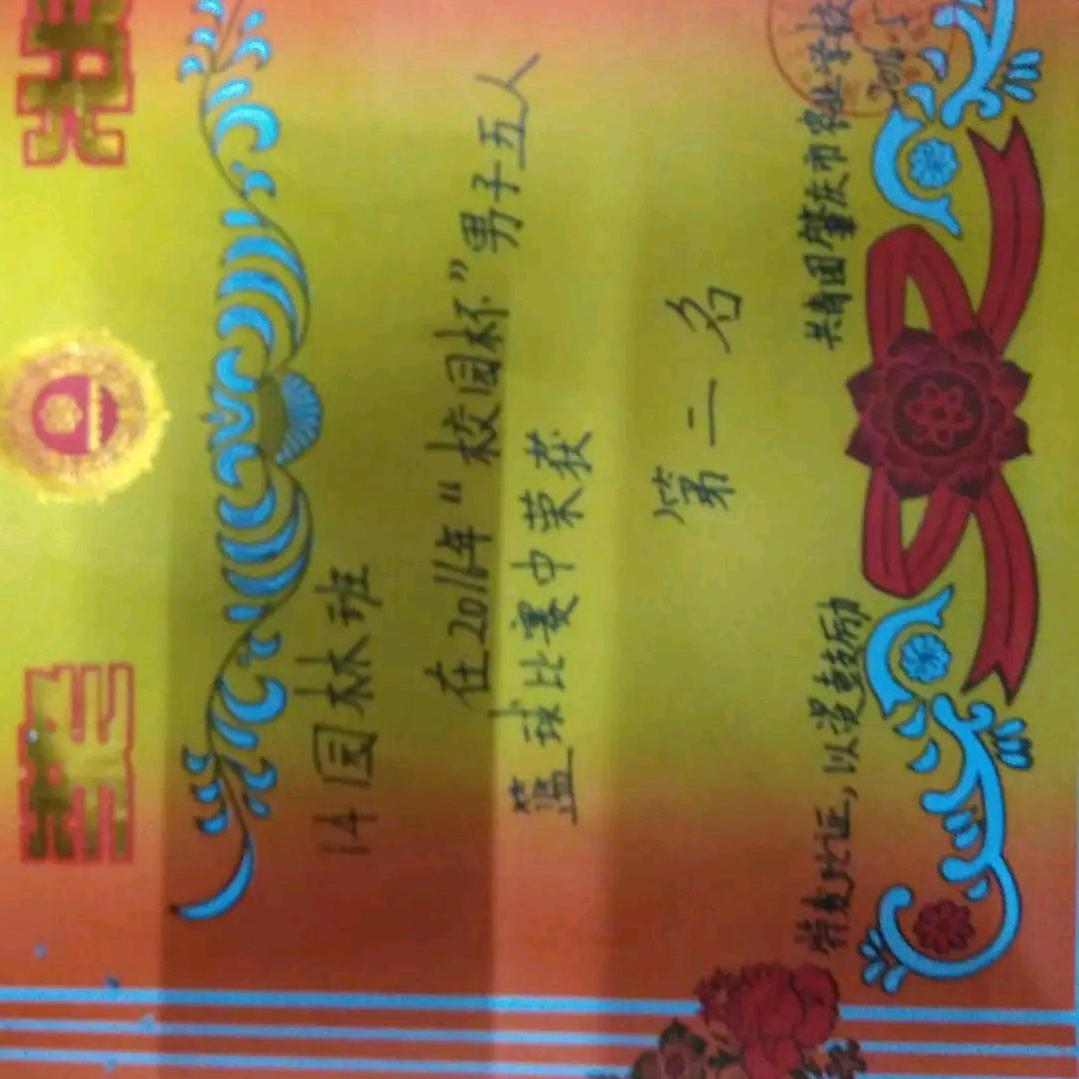 奖状
14园林班
在2016年“校园杯”男子五人
篮球比赛中荣获
第二名
特发此证,以资鼓励
共青团肇庆市农业学校
2016.5